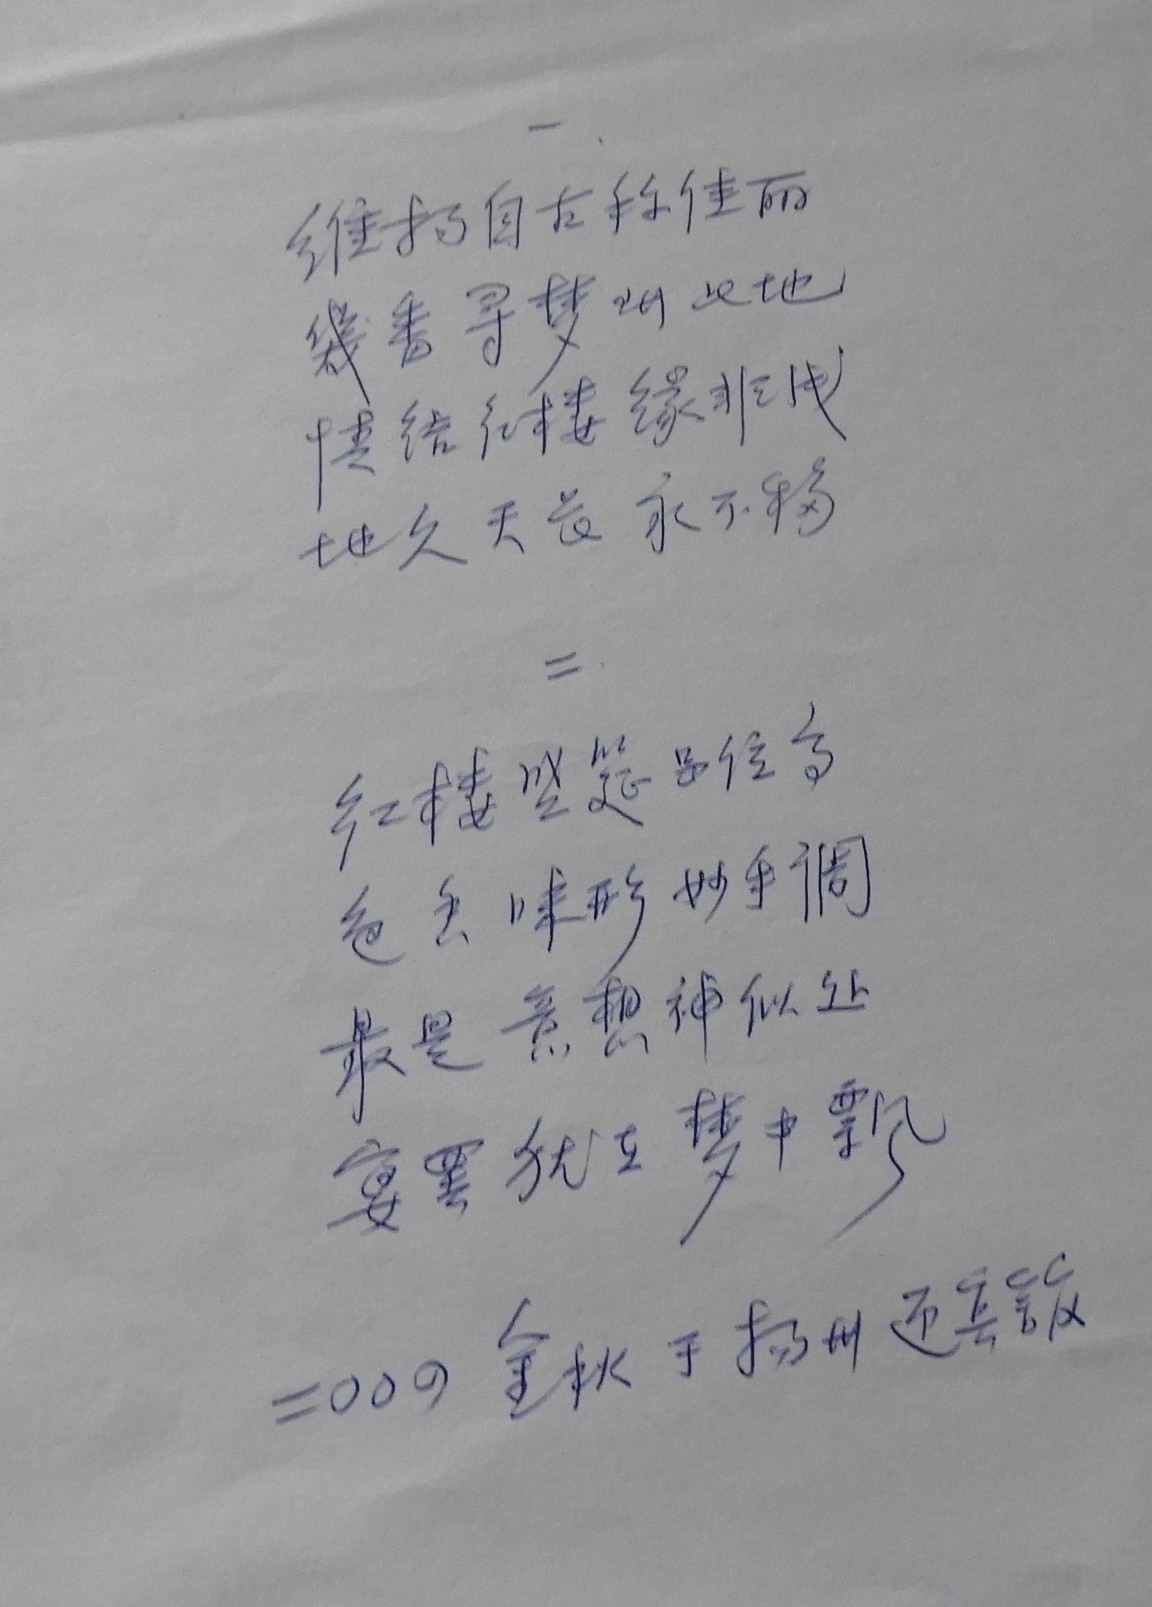 一.
维扬自古称佳丽
幾番寻梦到此地
情结红楼缘非浅
地久天长永不移
二.
红楼盛筵品位高
色香味形妙手调
最是意想神似处
宴罢犹在梦中飘
二〇〇九 金秋于扬州迎宾馆